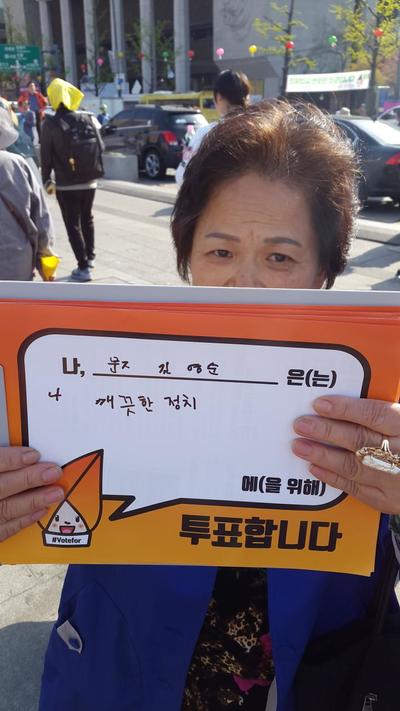 나, 문지 김 영순 은(는)
나 깨끗한 정치
에(을 위해)
투표합니다
#Votefor